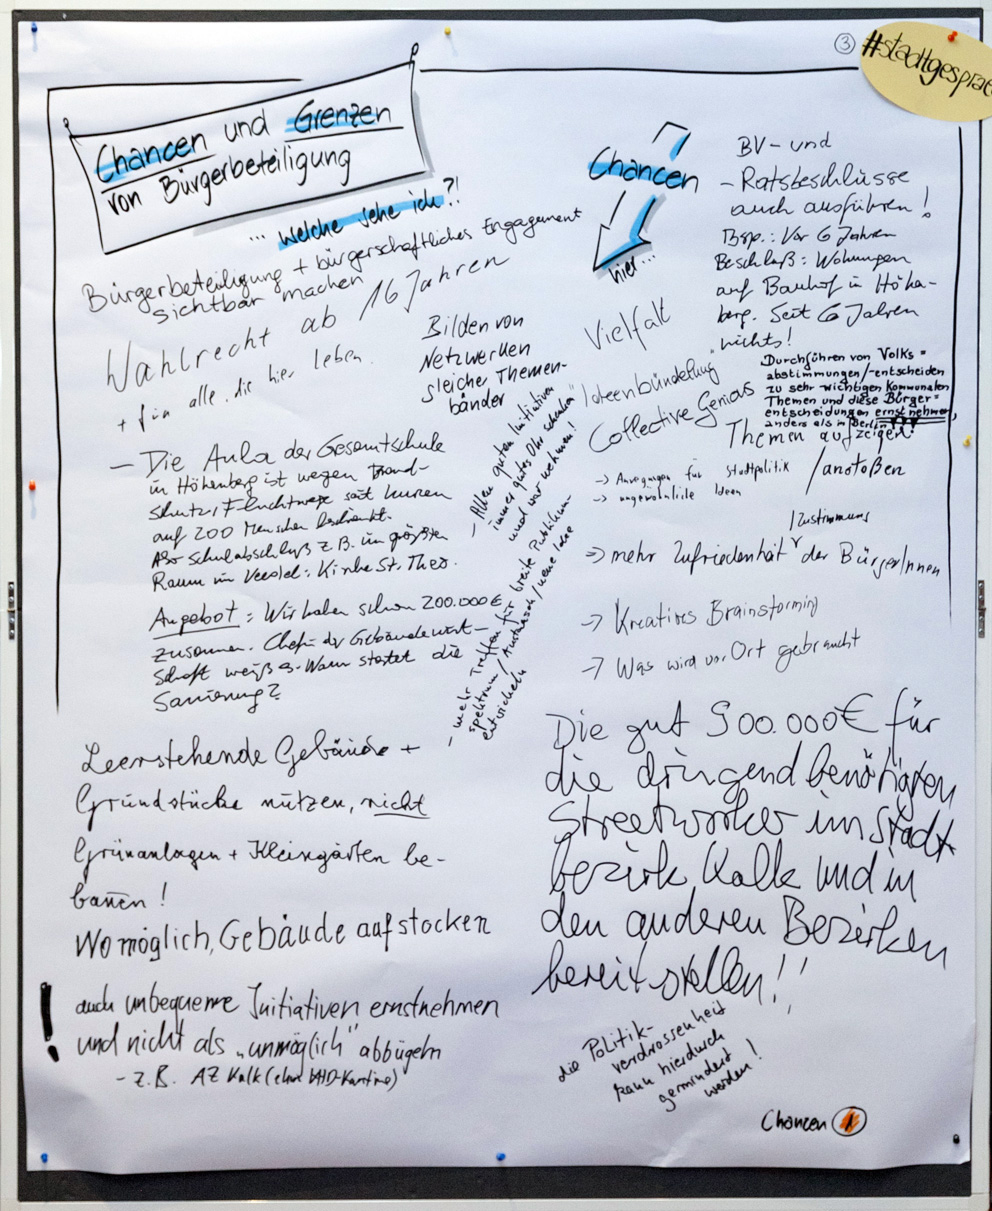 ③ #stadtgesprä
Chancen und Grenzen
von Bürgerbeteiligung
... welche sehe ich?!
Bürgerbeteiligung + bürgerschaftliches Engagement
sichtbar machen
Wahlrecht ab 16 Jahren
+ für alle, die hier leben.
Bilden von
Netzwerken
gleicher Themen-
bänder
- Die Aula der Gesamtschule
in Höhenberg ist wegen Brand-
schutz, Fluchtwege seit kurzen
auf 200 Menschen beschränkt.
Abi Schulabschluß z.B. im größten
Raum im Veedel: Kirche St. Theo.
Angebot: Wir haben schon 200.000€
zusammen. Chefin der Gebäudewirt-
schaft weiß es. Wann startet die
Sanierung?
- Allen guten Initiativen
immer gutes Ohr schenken
und wahrnehmen!
- mehr Treffen für breite Publikum-
spektrum / Austausch / neue Idee
entwickeln
Leerstehende Gebäude +
Grundstücke nutzen, nicht
Grünanlagen + Kleingärten be-
bauen!
Wo möglich, Gebäude aufstocken
! auch unbequeme Initiativen ernstnehmen
und nicht als „unmöglich" abbügeln
- z.B. AZ Kalk (ehm. KHD-Kantine)
Chancen
hier...
Vielfalt
"Ideenbündelung"
Collective Genious
-> Anregungen für Stadtpolitik
-> ungewöhnliche Ideen
BV- und
- Ratsbeschlüsse
auch ausführen!
Bsp.: Vor 6 Jahren
Beschluß: Wohnungen
auf Bauhof in Höhen-
berg. Seit 6 Jahren
nichts!
Durchführen von Volks=
abstimmungen/-entscheiden
zu sehr wichtigen kommunalen
Themen und diese Bürger=
entscheidungen ernst nehmen,
anders als in Berlin
Themen aufzeigen!
/anstoßen
/Zustimmung
=> mehr Zufriedenheit der BürgerInnen
-> Kreatives Brainstorming
-> Was wird vor Ort gebraucht
Die gut 900.000€ für
die dringend benötigten
Streetworker im Stadt
bezirk Kalk und in
den anderen Bezirken
bereitstellen!!
die Politik-
verdrossenheit
kann hierdurch
gemindert
werden!
Chancen 1